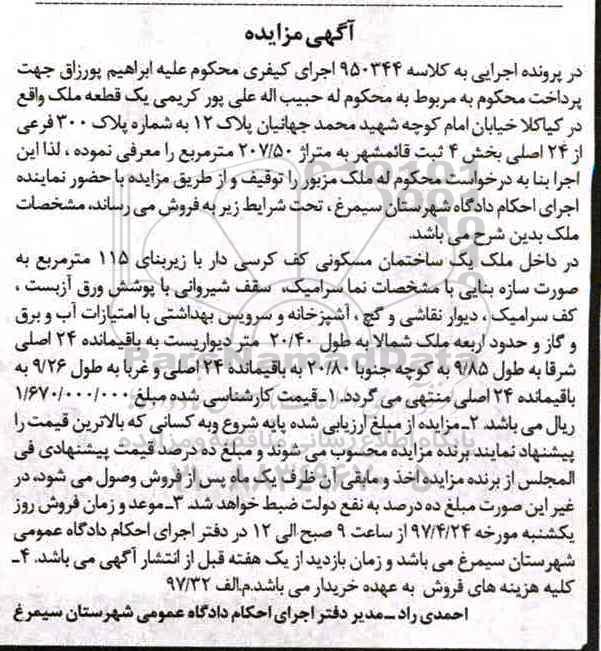 آگهی مزایده
در پرونده اجرایی به کلاسه ۹۵۰۳۴۴ اجرای کیفری محکوم علیه ابراهیم پورزاق جهت
پرداخت محکوم به مربوط به محکوم له حبیب اله علی پور کریمی یک قطعه ملک واقع
در کیاکلا خیابان امام کوچه شهید محمد جهانیان پلاک ۱۲ به شماره پلاک ۳۰۰ فرعی
از ۲۴ اصلی بخش ۴ ثبت قائمشهر به متراژ ۲۰۷/۵۰ مترمربع را معرفی نموده ، لذا این
اجرا بنا به درخواست محکوم له ملک مزبور را توقیف و از طریق مزایده با حضور نماینده
اجرای احکام دادگاه شهرستان سیمرغ ، تحت شرایط زیر به فروش می رساند، مشخصات
ملک بدین شرح می باشد.
در داخل ملک یک ساختمان مسکونی کف کرسی دار با زیربنای ۱۱۵ مترمربع به
صورت سازه بنایی با مشخصات نما سرامیک، سقف شیروانی با پوشش ورق آزبست ،
کف سرامیک ، دیوار نقاشی و گچ ، آشپزخانه و سرویس بهداشتی با امتیازات آب و برق
و گاز و حدود اربعه ملک شمالا به طول ۲۰/۴۰ متر دیواریست به باقیمانده ۲۴ اصلی
شرقا به طول ۹/۸۵ به کوچه جنوبا ۲۰/۸۰ به باقیمانده ۲۴ اصلی و غربا به طول ۹/۲۶ به
باقیمانده ۲۴ اصلی منتهی می گردد. ۱ـ قیمت کارشناسی شده مبلغ ۱/۶۷۰/۰۰۰/۰۰۰
ریال می باشد. ۲ـ مزایده از مبلغ ارزیابی شده پایه شروع وبه کسانی که بالاترین قیمت را
پیشنهاد نمایند برنده مزایده محسوب می شوند و مبلغ ده درصد قیمت پیشنهادی فی
المجلس از برنده مزایده اخذ و مابقی آن ظرف یک ماه پس از فروش وصول می شود، در
غیر این صورت مبلغ ده درصد به نفع دولت ضبط خواهد شد. ۳ـ موعد و زمان فروش روز
یکشنبه مورخه ۹۷/۴/۲۴ از ساعت ۹ صبح الی ۱۲ در دفتر اجرای احکام دادگاه عمومی
شهرستان سیمرغ می باشد و زمان بازدید از یک هفته قبل از انتشار آگهی می باشد. ۴ـ
کلیه هزینه های فروش به عهده خریدار می باشد.م.الف ۹۷/۳۲
احمدی راد ـ مدیر دفتر اجرای احکام دادگاه عمومی شهرستان سیمرغ
ParsNamadData
پایگاه اطلاع رسانی مناقصه و مزایده